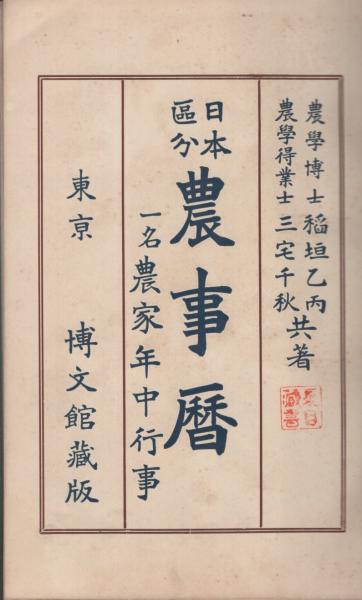 農學博士 稲垣乙丙
農學得業士 三宅千秋
共著
日本
區分
農事曆
一名 農家年中行事
東京 博文館藏版